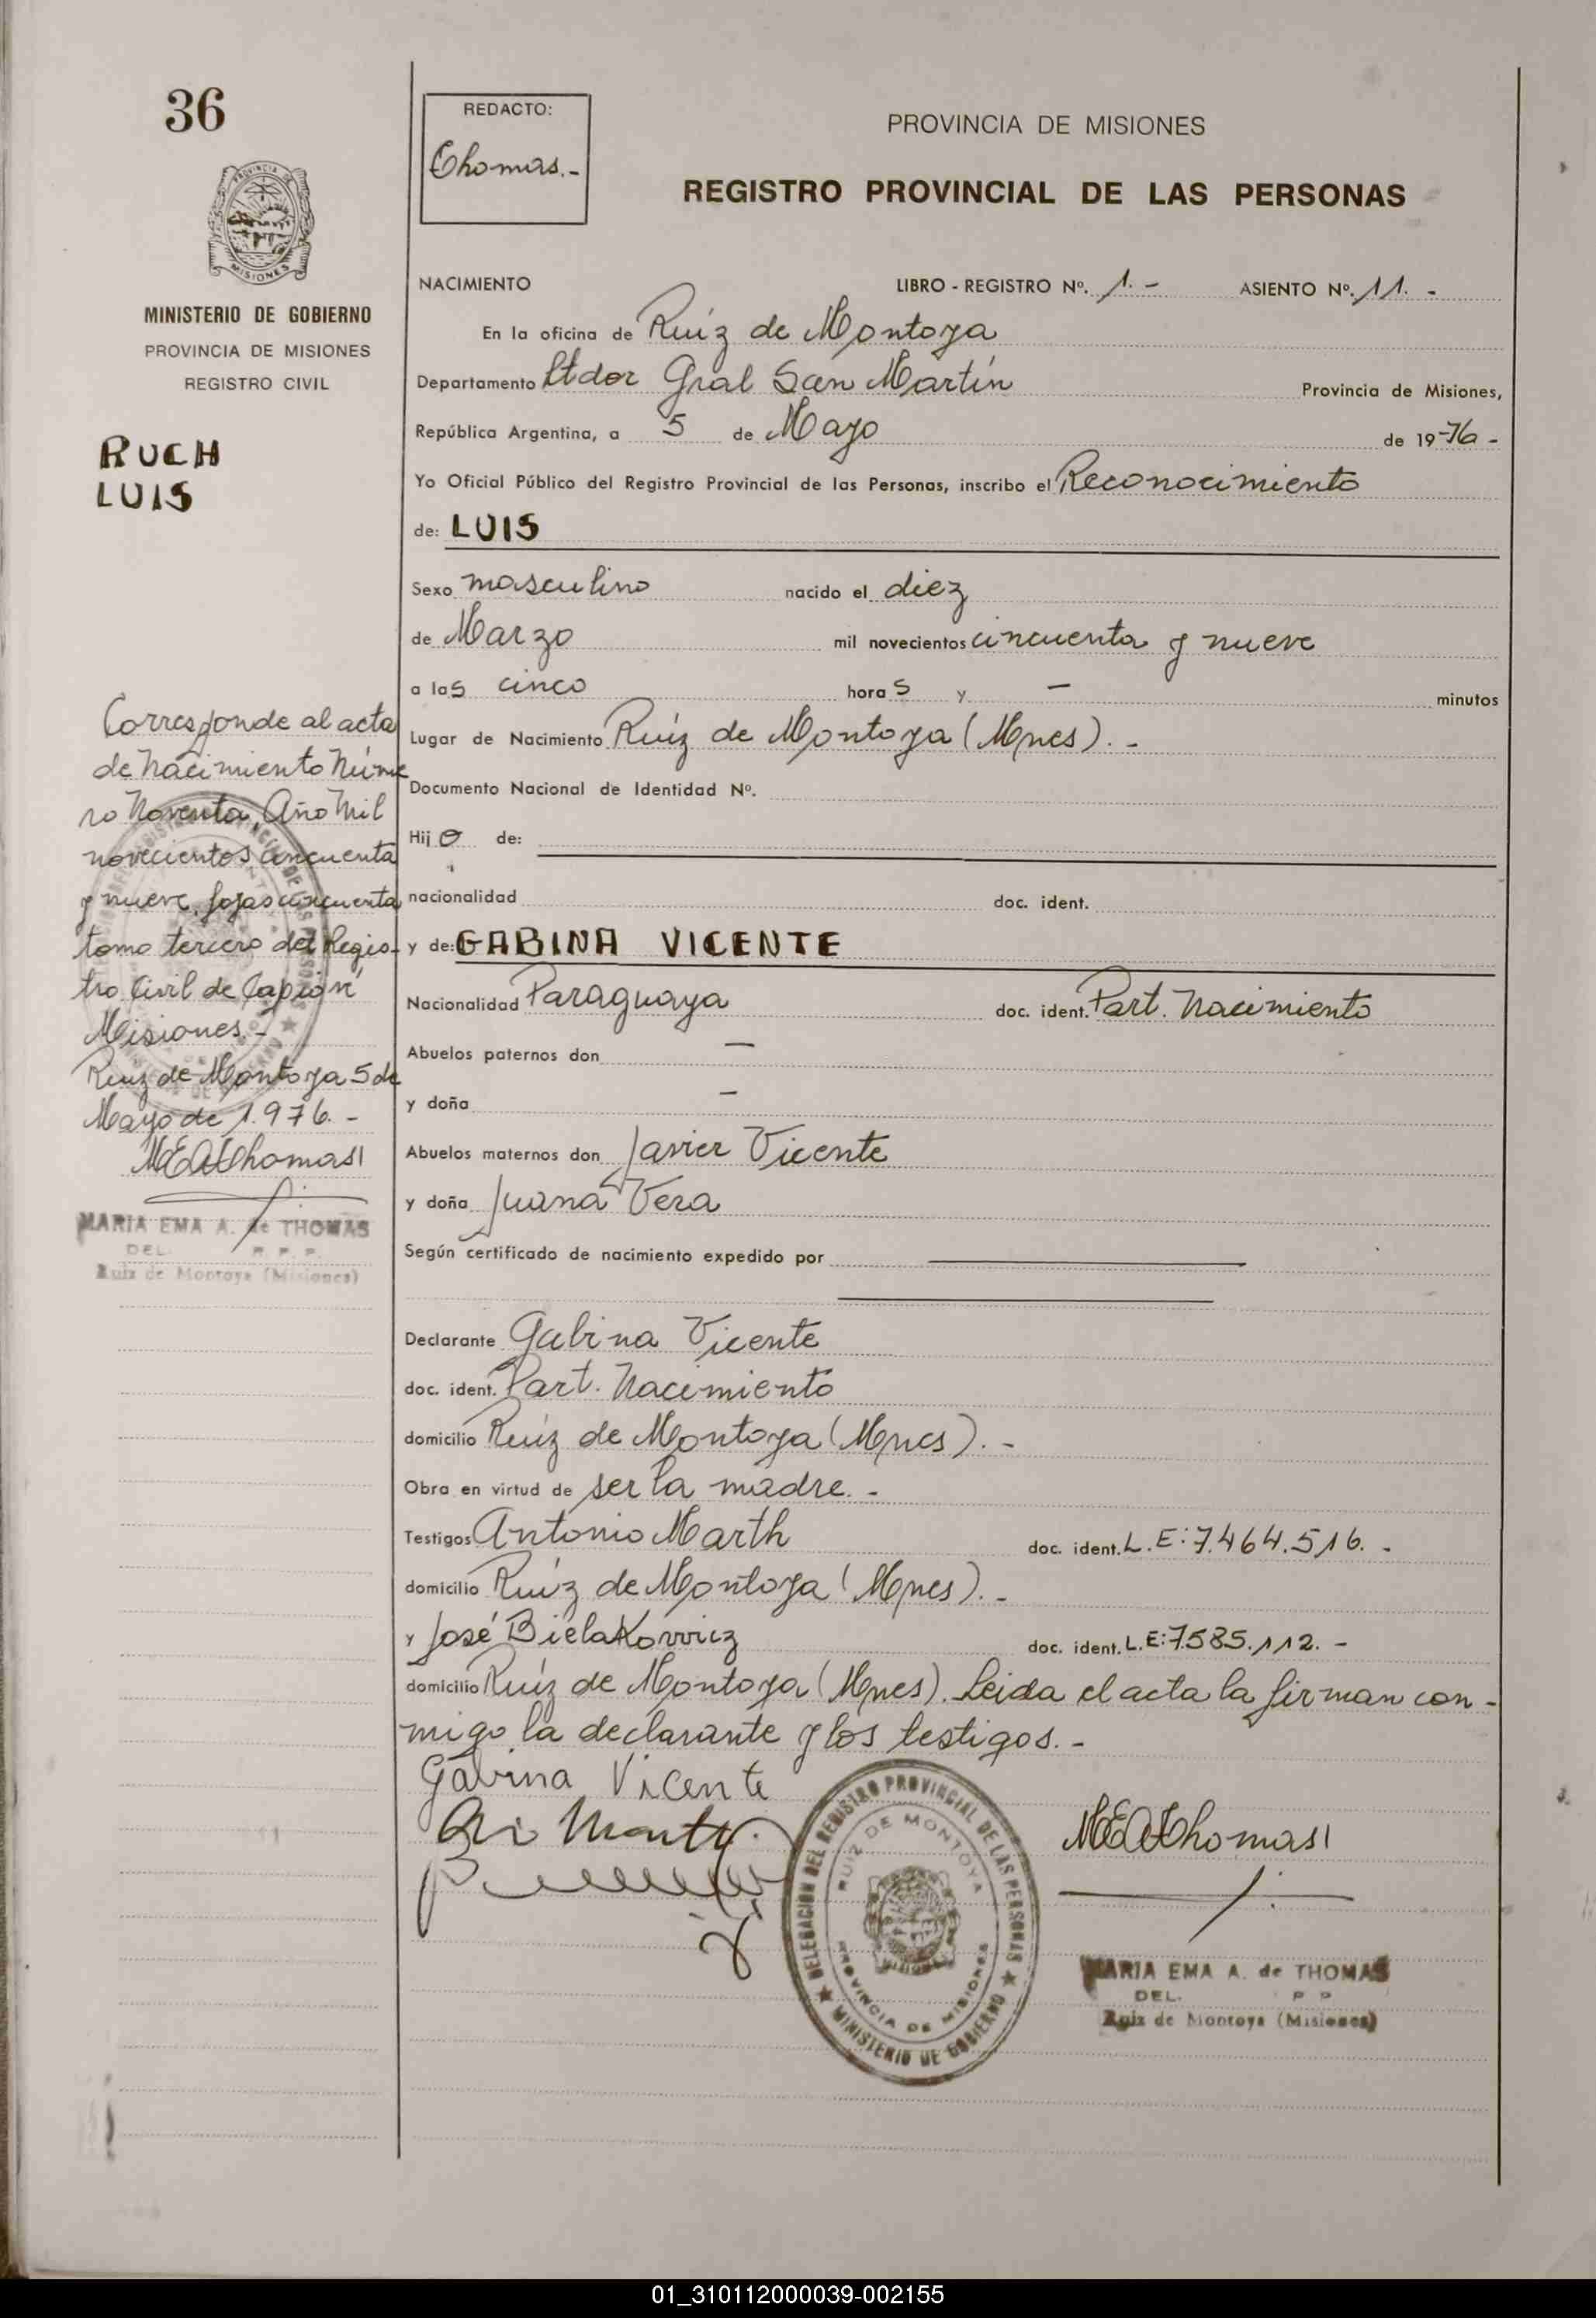 36
PROVINCIA DE
MISIONES
MINISTERIO DE GOBIERNO
PROVINCIA DE MISIONES
REGISTRO CIVIL
RUCH
LUIS
Corresponde al acta
de Nacimiento Núme
ro Noventa, Año Mil
novecientos cincuenta
y nueve, fojas cincuenta
tomo tercero del Regis-
tro Civil de Capioví
Misiones.-
Ruiz de Montoya 5 de
Mayo de 1.976.-
MEAThomas
MARIA EMA A. de THOMAS
DEL. R. P. P.
Ruiz de Montoya (Misiones)
REDACTO:
Thomas.-
PROVINCIA DE MISIONES
REGISTRO PROVINCIAL DE LAS PERSONAS
NACIMIENTO LIBRO - REGISTRO Nº. 1.- ASIENTO Nº. 11.-
En la oficina de Ruíz de Montoya
Departamento Ltdor Gral San Martín Provincia de Misiones,
República Argentina, a 5 de Mayo de 19-76-
Yo Oficial Público del Registro Provincial de las Personas, inscribo el Reconocimiento
de: LUIS
Sexo masculino nacido el diez
de Marzo mil novecientos cincuenta y nueve
a las cinco horas y — minutos
Lugar de Nacimiento Ruíz de Montoya (Mnes).-
Documento Nacional de Identidad Nº.
Hijo de:
nacionalidad doc. ident.
y de: GABINA VICENTE
Nacionalidad Paraguaya doc. ident. Part. Nacimiento
Abuelos paternos don —
y doña —
Abuelos maternos don Javier Vicente
y doña Juana Vera
Según certificado de nacimiento expedido por
Declarante Gabina Vicente
doc. ident. Part. Nacimiento
domicilio Ruíz de Montoya (Mnes).-
Obra en virtud de ser la madre.-
Testigos Antonio Marth doc. ident. L.E:7.464.516.-
domicilio Ruíz de Montoya (Mnes).-
y José Bielakovvicz doc. ident. L.E:7.585.112.-
domicilio Ruíz de Montoya (Mnes). Leida el acta la firman con-
migo la declarante y los testigos.-
Gavina Vicente
MEAThomas
DELEGACION DEL REGISTRO PROVINCIAL DE LAS PERSONAS
MINISTERIO DE GOBIERNO
RUIZ DE MONTOYA
PROVINCIA DE MISIONES
MARIA EMA A. de THOMAS
DEL. P P
Ruiz de Montoya (Misiones)
01_310112000039-002155